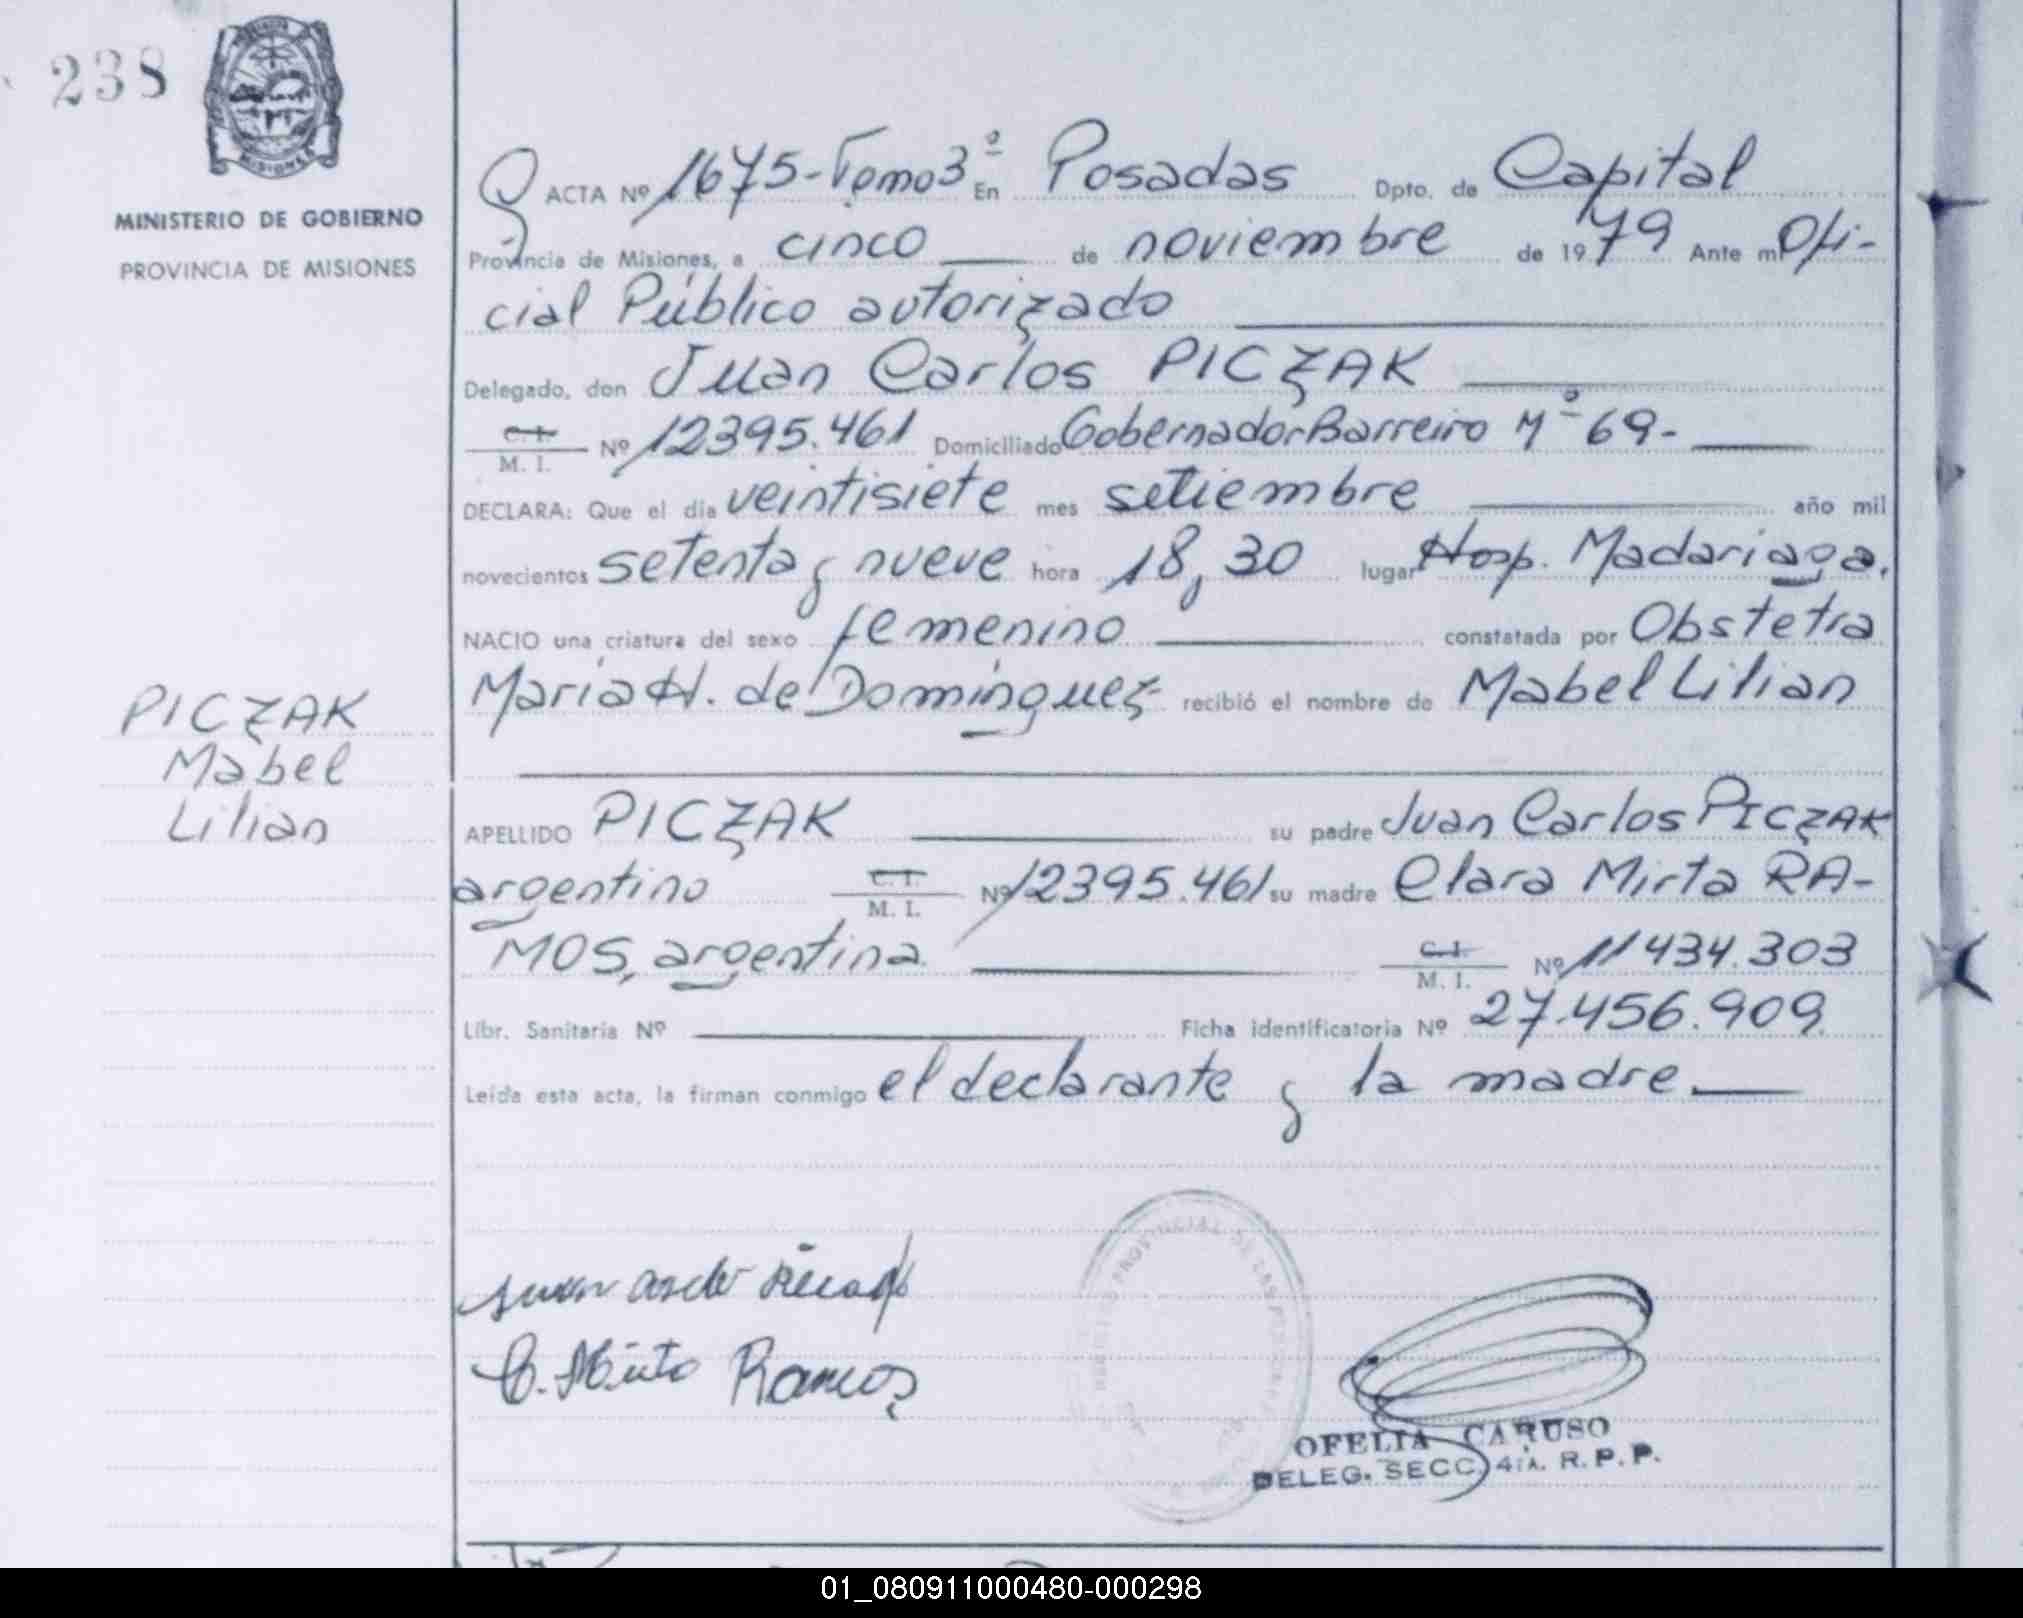 238
MISIONES
MINISTERIO DE GOBIERNO
PROVINCIA DE MISIONES
PICZAK
Mabel
Lilian
ACTA Nº 1675-Tomo 3º En Posadas Dpto. de Capital
Provincia de Misiones, a cinco de noviembre de 1979 Ante mi Ofi-
cial Público autorizado
Delegado, don Juan Carlos PICZAK
C. I. M. I. Nº 12395.461 Domiciliado Gobernador Barreiro Nº 69-
DECLARA: Que el día veintisiete mes setiembre año mil
novecientos setenta y nueve hora 18,30 lugar Hosp. Madariaga.
NACIO una criatura del sexo femenino constatada por Obstetra
María H. de Domínguez recibió el nombre de Mabel Lilian
APELLIDO PICZAK su padre Juan Carlos PICZAK
argentino C. I. M. I. Nº 12395.461 su madre Clara Mirta RA-
MOS, argentina C. I. M. I. Nº 11434.303
Libr. Sanitaria Nº Ficha identificatoria Nº 27.456.909
Leída esta acta, la firman conmigo el declarante y la madre
C. Mirta Ramos
OFELIA CARUSO
DELEG. SECC. 4ta. R. P. P.
01_080911000480-000298